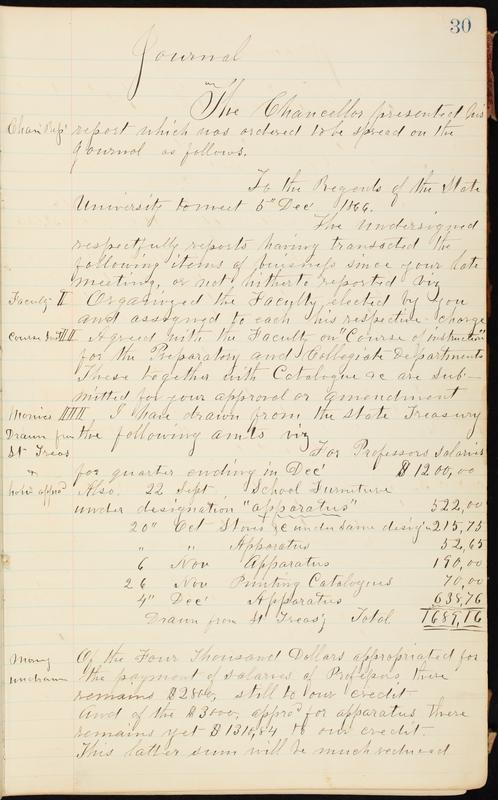 30
Journal
The Chancellor presented his
Chan Rep' report which was ordered to be spread on the
Journal as follows.
To the Regents of the State
University to meet 5" Dec 1866.
The undersigned
respectfully reports having transacted the
following items of business since your late
meeting, or not hitherto reported viz
Faculty I Organized the Faculty elected by you
and assigned to each his respective charge
Course Ins II Agreed with the Faculty on "Course of instruction"
for the Preparatory and Collegiate Departments
These together with Catalogue &c are sub-
mitted for your approval or amendment
Monies III I have drawn from the State Treasury
Drawn from the following amts viz
St Treas For Professors salaries
& for quarter ending in Dec' $1200,00
how appro' Also. 22 Sept School Furniture
under designation "apparatus" 522,00
20" Oct Stoves &c under same desig'n 215,75
" " Apparatus 52,65
6 Nov Apparatus 190,00
26 Nov Printing Catalogues 70,00
4" Dec' Apparatus 638,76
Drawn from St Treas'y Total 1689,16
Money Of the Four Thousand Dollars appropriated for
undrawn the payment of salaries of Professors, there
remains $2800, still to our credit
And of the $3000, appro'd for apparatus there
remains yet $1310,84 to our credit
This latter sum will be much reduced